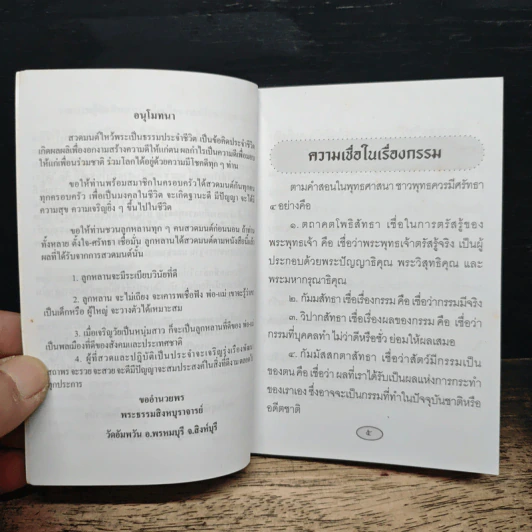 อนุโมทนา
สวดมนต์ไหว้พระเป็นธรรมประจำชีวิต เป็นข้อคิดประจำชีวิต
เกิดผลผลิเพื่องอกงามสร้างความดีให้แก่ตน ผลกำไรเป็นความดีเพื่อ
ให้แก่เพื่อนร่วมชาติ ร่วมโลกได้อยู่ด้วยความมีโชคดีทุก ๆ ท่าน
ขอให้ท่านพร้อมสมาชิกในครอบครัวได้สวดมนต์กัน
ทุกครอบครัว เพื่อเป็นมงคลในชีวิต จะเกิดฐานะดี มีปัญญา จะได้
ความสุข ความเจริญยิ่ง ๆ ขึ้นไปในชีวิต
ขอให้ท่านชวนลูกหลานทุก ๆ คนสวดมนต์ก่อนนอน ถ้า
ทั้งหลาย ตั้งใจ-ศรัทธา เชื่อมั่น ลูกหลานได้สวดมนต์ตามหนังสือนี้
ผลที่ได้รับจากการสวดมนต์นั้น
1. ลูกหลานจะมีระเบียบวินัยที่ดี
2. ลูกหลาน จะไม่เถียง จะเคารพเชื่อฟัง พ่อ-แม่ เขาจะรู้
เป็นเด็กหรือ ผู้ใหญ่ จะวางตัวได้เหมาะสม
3. เมื่อเจริญวัยเป็นหนุ่มสาว ก็จะเป็นลูกหลานที่ดีของ พ่อ-แม่
เป็นพลเมืองที่ดีของสังคมและประเทศชาติ
4. ผู้ที่สวดและปฏิบัติเป็นประจำจะเจริญรุ่งเรือง
จะรวย จะสวย จะดีมีปัญญาจะสมประสงค์ในสิ่งที่ดีงาม
ทุกประการ
ขออำนวยพร
พระธรรมสิงหบุราจารย์
วัดอัมพวัน อ.พรหมบุรี จ.สิงห์บุรี
ความเชื่อในเรื่องกรรม
ตามคำสอนในพุทธศาสนา ชาวพุทธควรมีศรัทธา
๔ อย่างคือ
๑. ตถาคตโพธิสัทธา เชื่อในการตรัสรู้ของ
พระพุทธเจ้า คือ เชื่อว่าพระพุทธเจ้าตรัสรู้จริง เป็นผู้
ประกอบด้วยพระปัญญาธิคุณ พระวิสุทธิคุณ และ
พระมหากรุณาธิคุณ
๒. กัมมสัทธา เชื่อเรื่องกรรม คือ เชื่อว่ากรรมมีจริง
๓. วิปากสัทธา เชื่อเรื่องผลของกรรม คือ เชื่อว่า
กรรมที่บุคคลทำ ไม่ว่าดีหรือชั่ว ย่อมให้ผลเสมอ
๔. กัมมัสสกตาสัทธา เชื่อว่าสัตว์มีกรรมเป็น
ของตน คือ เชื่อว่า ผลที่เราได้รับเป็นผลแห่งการกระทำ
ของเราเอง ซึ่งอาจจะเป็นกรรมที่ทำในปัจจุบันชาติหรือ
อดีตชาติ
๕